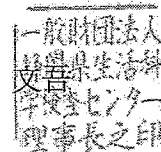 一般財団法人
県生活科
学検査センター
理事長之印
文吾